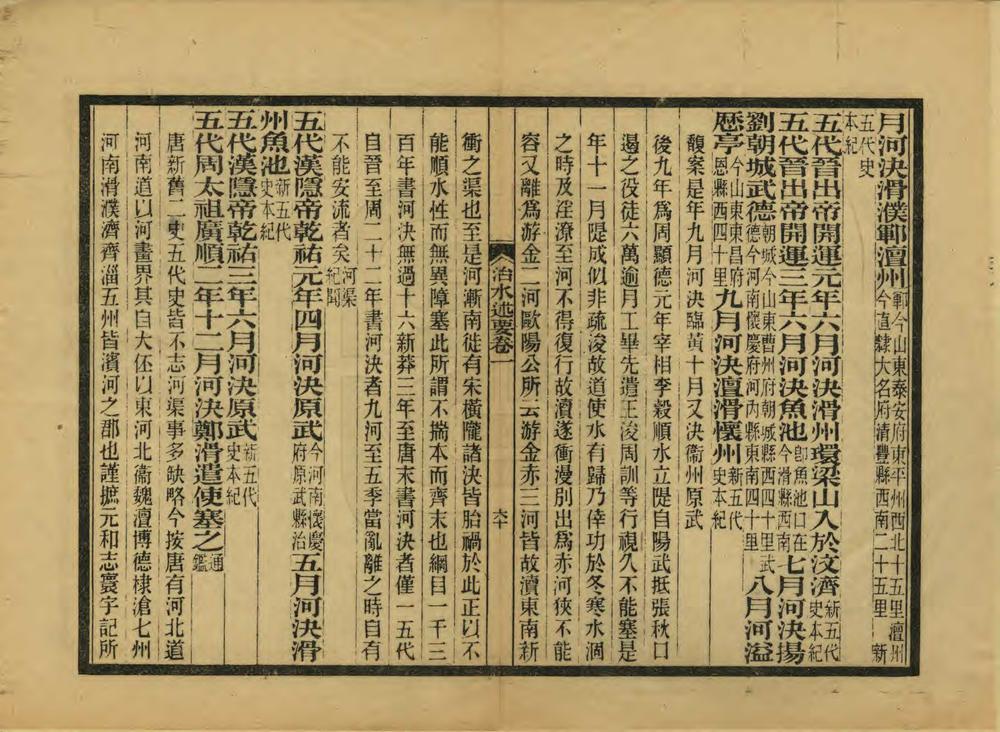 月河決滑濮鄆澶州鄆今山東泰安府東平州西北十五里澶州今直隸大名府清豐縣西南二十五里新
五代史本紀
五代晉出帝開運元年六月河決滑州環梁山入於汶濟新五代史本紀
五代晉出帝開運三年六月河決魚池卽魚池口在今滑縣西南七月河決揚
劉朝城武德朝城今山東曹州府朝城縣西四十里武德今河南懷慶府河內縣東南四十里八月河溢
歷亭今山東東昌府恩縣西四十里九月河決澶滑懷州新五代史本紀
馥案是年九月河決臨黃十月又決衞州原武
後九年爲周顯德元年宰相李穀順水立隄自陽武抵張秋口
遏之役徒六萬逾月工畢先遣王浚周訓等行視久不能塞是
年十一月隄成似非疏浚故道使水有歸乃倖功於冬寒水涸
之時及淫潦至河不得復行故瀆遂衝漫別出爲赤河狹不能
容又離爲游金二河歐陽公所云游金赤三河皆故瀆東南新
治水述要卷一
六十
衝之渠也至是河漸南徙有宋橫隴諸決皆胎禍於此正以不
能順水性而無異障塞此所謂不揣本而齊末也綱目一千三
百年書河決無過十六新莽三年至唐末書河決者僅一五代
自晉至周二十二年書河決者九河至五季當亂離之時自有
不能安流者矣河渠紀聞
五代漢隱帝乾祐元年四月河決原武今河南懷慶府原武縣治五月河決滑
州魚池新五代史本紀
五代漢隱帝乾祐三年六月河決原武新五代史本紀
五代周太祖廣順二年十二月河決鄭滑遣使塞之通鑑
唐新舊二史五代史皆不志河渠事多缺略今按唐有河北道
河南道以河畫界其自大伾以東河北衞魏澶博德棣滄七州
河南滑濮濟齊淄五州皆濱河之郡也謹摭元和志寰宇記所